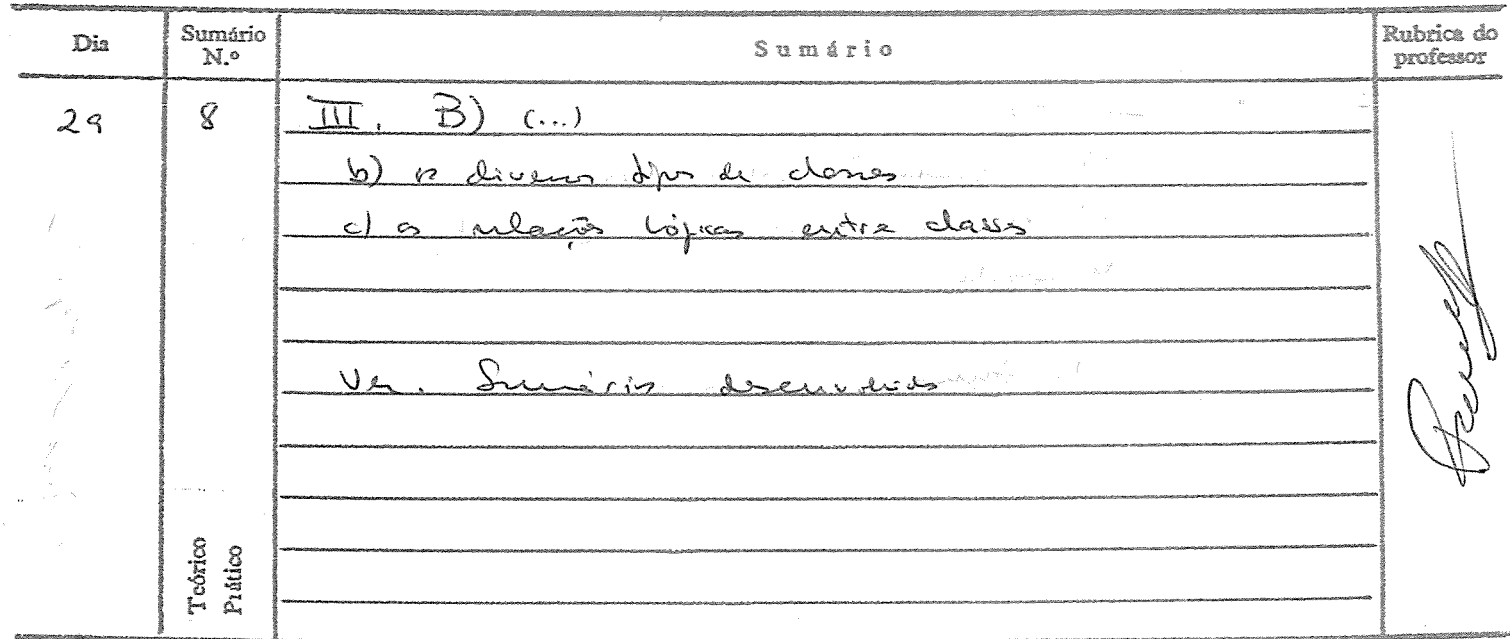 Dia
Sumário N.º
Sumário
Rubrica do professor
29
8
III. B) (...)
b) os diversos tipos de classes
c) as relações lógicas entre classes
Ver. Sumário desenvolvido
Teórico
Prático